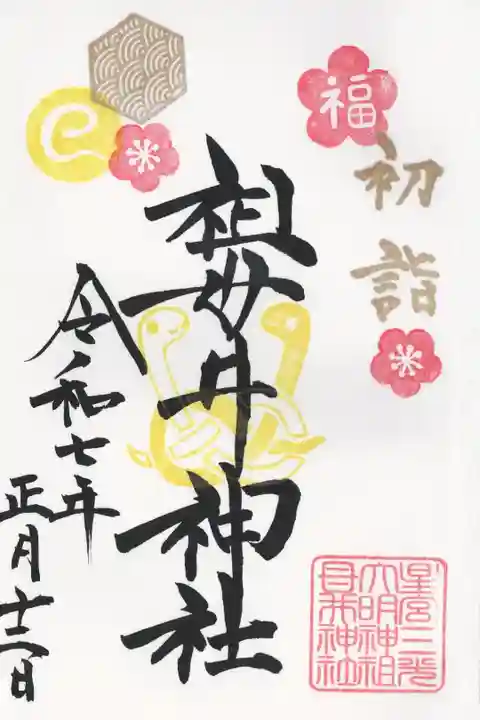 福
初詣
祖母井神社
令和七年
正月十三日
星宮三光
大明神祖
母井神社